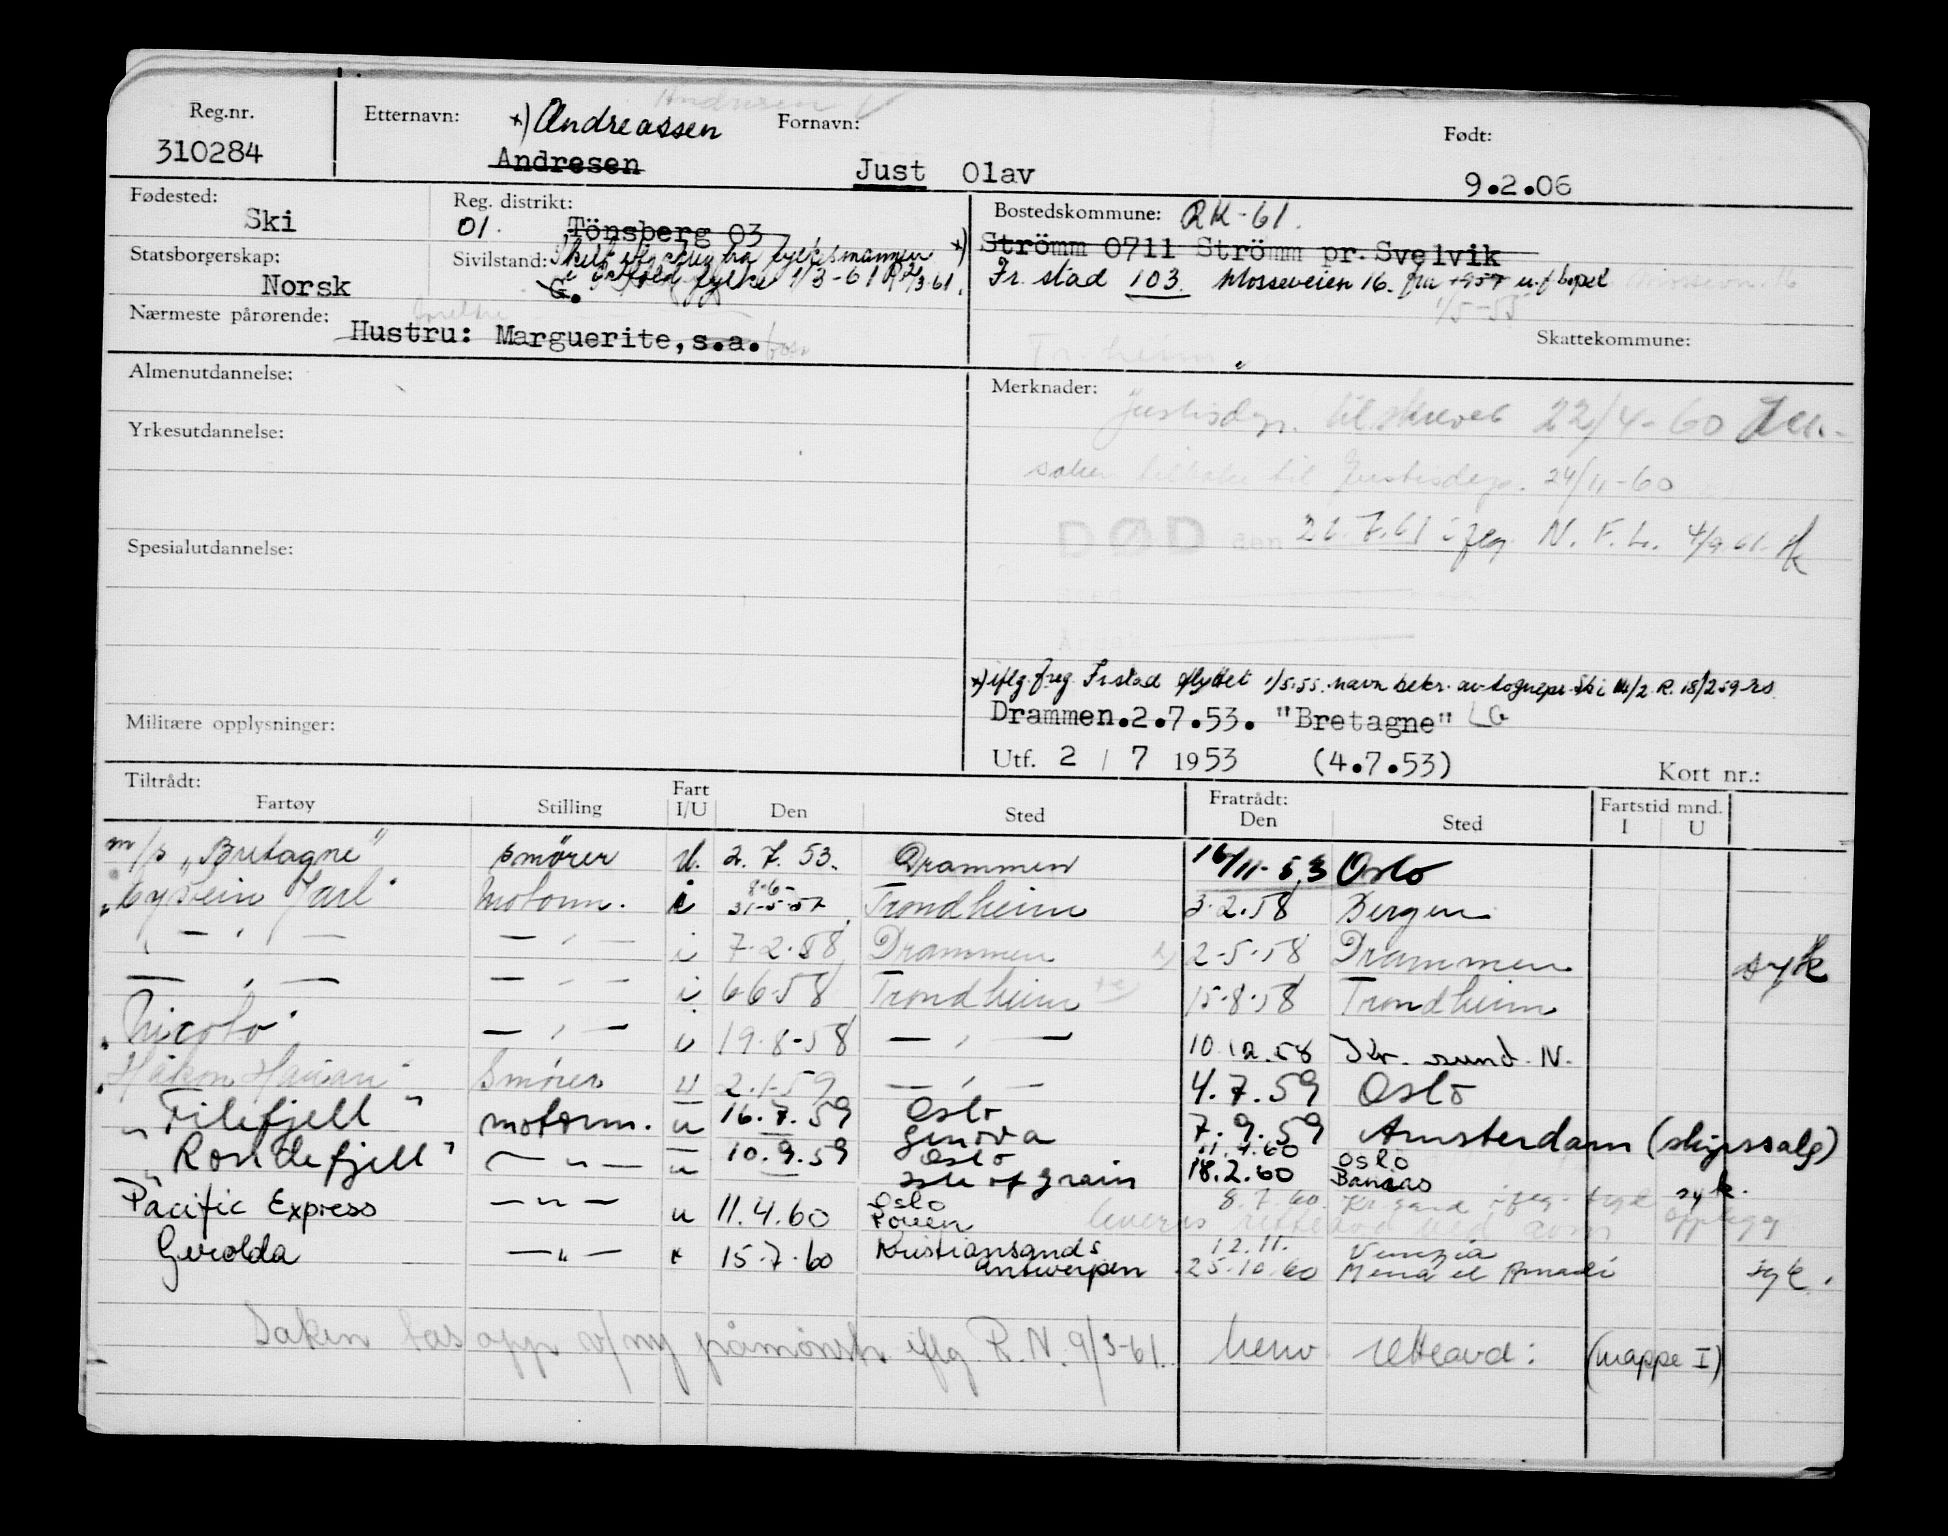 Reg.nr. Etternavn: Fornavn: Født:
Andresen
*) Andreassen
310284 Andresen Just Olav 9.2.06
Fødested: Ski Reg. distrikt: 01. Tönsberg 03 Bostedskommune: RK-61.
Strömm 0711 Strömm pr. Svelvik
Statsborgerskap: Norsk Sivilstand: G. Skilt iflg. fra fylkesmannen
i Østfold fylke 1/3-61
*) Fr.stad 103. Mosseveien 16. fra 1957 u/bopel
1/5-55
Nærmeste pårørende: Hustru: Marguerite, s.a.
Skattekommune:
Tr.heim
Almenutdannelse: Merknader:
Justisdep. tilskrevet 22/4-60
Yrkesutdannelse:
saken tilbake til Justisdep. 24/11-60
Spesialutdannelse:
DØD den 26.7.61 iflg. N.F.L. 4/9.61.
Sted
Årsak
*) iflg. freg. Fr.stad flyttet 1/5.55. navn bekr. av sognepr. Ski 14/2. R. 18/2 59
Militære opplysninger:
Drammen.2.7.53. "Bretagne" LG
Utf. 2 / 7 1953 (4.7.53) Kort nr.:
Tiltrådt: Fratrådt: Fartstid mnd.
Fartøy Stilling Fart I/U Den Sted Den Sted I U
m/s "Bretagne" smører U. 2.7.53. Drammen 16/11-53 Oslo
" Øystein Jarl" Motorm. i 8-6- Trondheim 3.2.58 Bergen
31-5-57
" — " — — " — i 7-2-58 Drammen 2-5-58 Drammen syk
— " — — " — i 6-6-58 Trondheim 15-8-58 Trondheim
" Nicoto" — " — u 19-8-58 — " — 10.12.58 Kr.sund. N.
" Håkon Hauan" Smører u 2.1-59 — " — 4.7.59 Oslo
" Filefjell" motorm. u 16.7.59 Oslo 7.9.59 Amsterdam (skipssalg)
Genova
" Rondefjell" — " — u 10.9.59 Oslo 11.4.60 Oslo
Isle of Grain 18.2.60 Banias syk.
Pacific Express — " — u 11.4.60 Oslo 8.7.60 Kr.sand iflg.
Rouen
Gerolda — " — 15.7.60 Kristiansand s. 12.11. Venezia
Antwerpen 25.10.60 Mena el Amadi syk.
Saken tas opp v/ny påmønstr. iflg. R.N. 9/3-61. henv. retteavd: (mappe I)